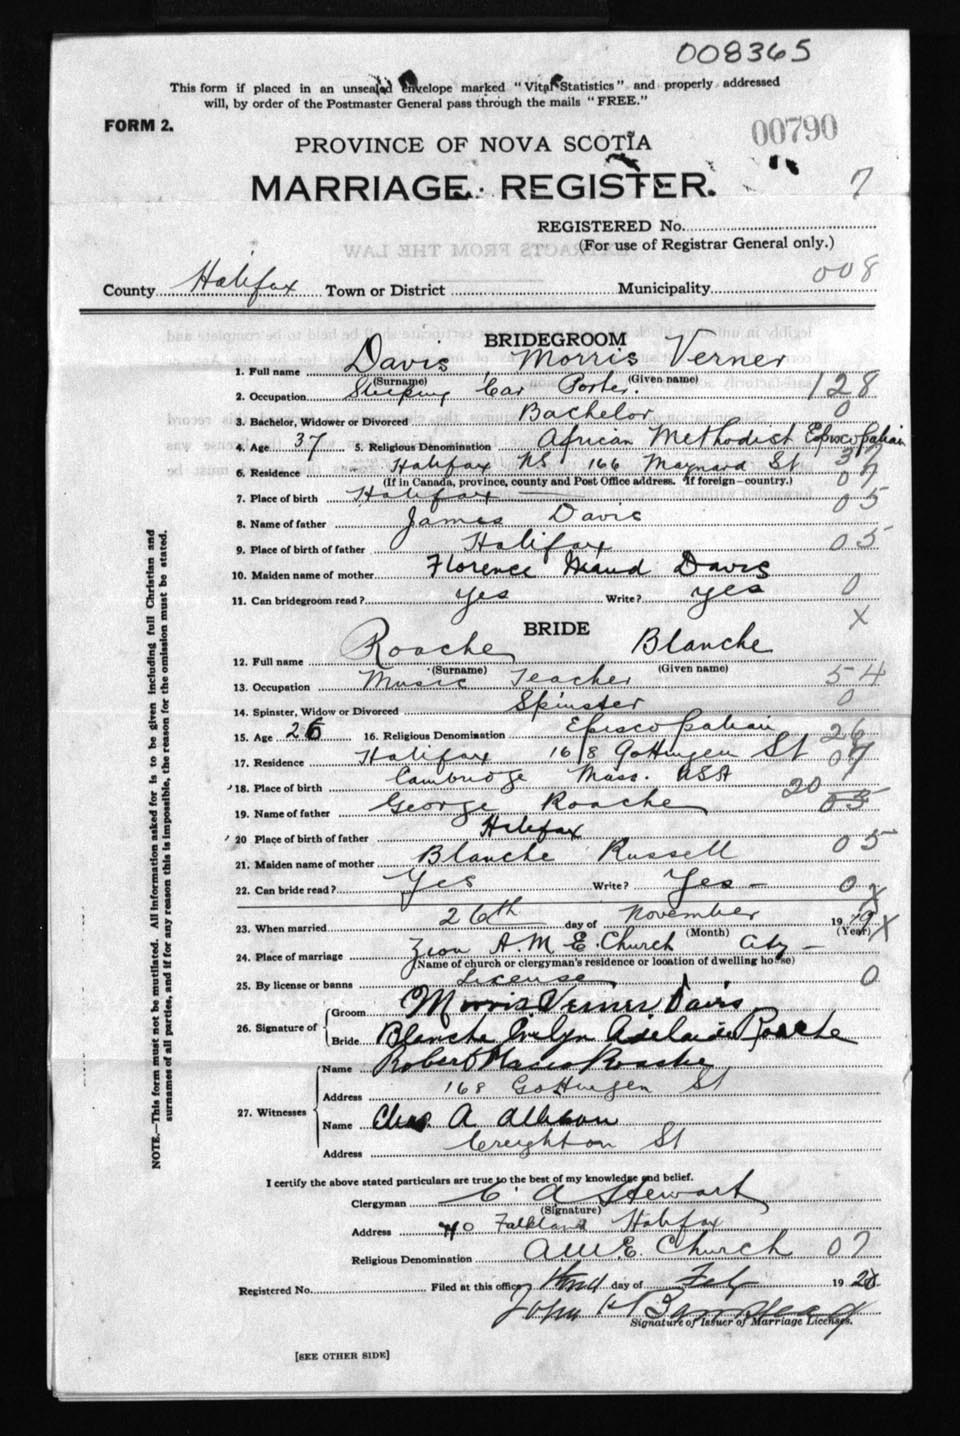 008365
This form if placed in an unsealed envelope marked "Vital Statistics" and properly addressed
will, by order of the Postmaster General pass through the mails "FREE."
FORM 2.
00790
PROVINCE OF NOVA SCOTIA
MARRIAGE REGISTER.
7
REGISTERED No.
(For use of Registrar General only.)
County Halifax Town or District Municipality 008
BRIDEGROOM
1. Full name Davis, Morris Verner
(Surname) (Given name)
2. Occupation Sleeping Car Porter. 128
3. Bachelor, Widower or Divorced Bachelor 0
4. Age 37 5. Religious Denomination African Methodist Episcopalian
6. Residence Halifax NS 166 Maynard St 37
(If in Canada, province, county and Post Office address. If foreign—country.) 07
7. Place of birth Halifax 05
8. Name of father James Davis
9. Place of birth of father Halifax 05
10. Maiden name of mother Florence Davis
11. Can bridegroom read? Yes Write? Yes 0
X
BRIDE
12. Full name Roache Blanche
(Surname) (Given name)
13. Occupation Music Teacher 54
14. Spinster, Widow or Divorced Spinster 0
15. Age 26 16. Religious Denomination Episcopalian 26
17. Residence Halifax 168 Gottingen St 07
18. Place of birth Cambridge Mass. USA 20
19. Name of father George Roache 05
20 Place of birth of father Halifax 05
21. Maiden name of mother Blanche Russell
22. Can bride read? Yes Write? Yes — 0
X
23. When married 26th day of November 19 19 X
(Month) (Year)
24. Place of marriage Zion A.M.E. Church City —
(Name of church or clergyman's residence or location of dwelling house)
25. By license or banns License 0
26. Signature of Groom Morris Verner Davis
Bride Blanche Evelyn Adelaide Roache
27. Witnesses Name Robert Roache
Address 168 Gottingen St
Name Chas. A. Allison
Address Creighton St
I certify the above stated particulars are true to the best of my knowledge and belief.
Clergyman C. A Stewart
(Signature)
Address Falkland Halifax
Religious Denomination A.M.E. Church 07
Registered No. Filed at this office day of Feby 19 20
John H
Signature of Issuer of Marriage Licenses.
[SEE OTHER SIDE]
NOTE.—This form must not be mutilated. All information asked for is to be given including full Christian and
surnames of all parties, and if for any reason this is impossible, the reason for the omission must be stated.